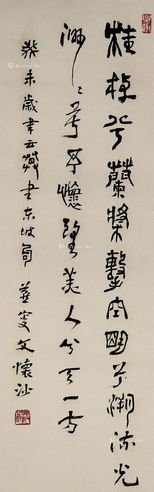 桂棹兮蘭槳擊空明兮溯流光
渺〻兮予懷望美人兮天一方
癸未歲書東坡句 燕叟文懷沙